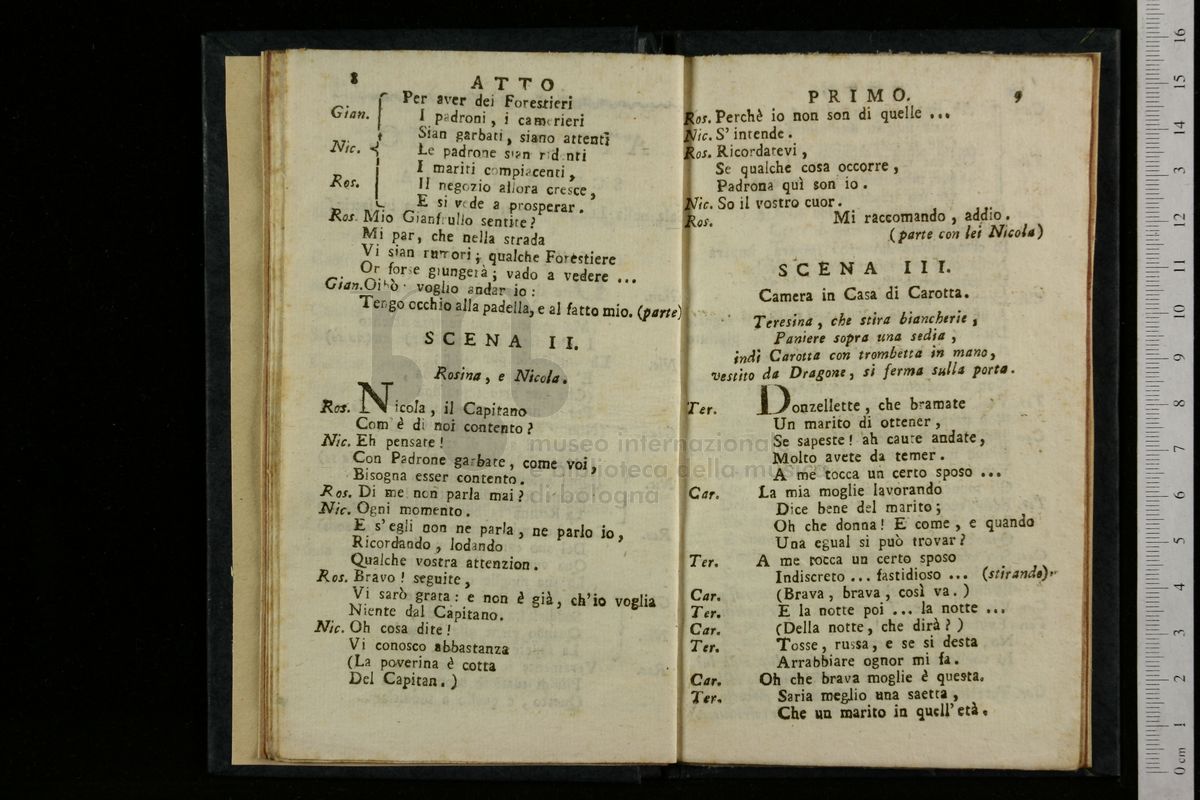 8
ATTO
Per aver dei Forestieri
Gian. I padroni, i camerieri
Sian garbati, siano attenti
Nic. Le padrone sian ridenti
I mariti compiacenti,
Ros. Il negozio allora cresce,
E si vede a prosperar.
Ros. Mio Gianfrullo sentite?
Mi par, che nella strada
Vi sian rumori; qualche Forestiere
Or forse giungerà; vado a vedere ...
Gian. Oibò voglio andar io:
Tengo occhio alla padella, e al fatto mio. (parte)
SCENA II.
Rosina, e Nicola.
Ros. Nicola, il Capitano
Com' è di noi contento?
Nic. Eh pensate!
Con Padrone garbate, come voi,
Bisogna esser contento.
Ros. Di me non parla mai?
Nic. Ogni momento.
E s'egli non ne parla, ne parlo io,
Ricordando, lodando
Qualche vostra attenzion.
Ros. Bravo! seguite,
Vi sarò grata: e non è già, ch'io voglia
Niente dal Capitano.
Nic. Oh cosa dite!
Vi conosco abbastanza
(La poverina è cotta
Del Capitan.)
PRIMO.
9
Ros. Perchè io non son di quelle ...
Nic. S' intende.
Ros. Ricordarevi,
Se qualche cosa occorre,
Padrona quì son io.
Nic. So il vostro cuor.
Ros. Mi raccomando, addio.
(parte con lei Nicola)
SCENA III.
Camera in Casa di Carotta.
Teresina, che stira biancherie,
Paniere sopra una sedia,
indi Carotta con trombetta in mano,
vestito da Dragone, si ferma sulla porta.
Ter. Donzellette, che bramate
Un marito di ottener,
Se sapeste! ah caute andate,
Molto avete da temer.
A me tocca un certo sposo ...
Car. La mia moglie lavorando
Dice bene del marito;
Oh che donna! E come, e quando
Una egual si può trovar?
Ter. A me tocca un certo sposo
Indiscreto ... fastidioso ... (stirando)
Car. (Brava, brava, così va.)
Ter. E la notte poi ... la notte ...
Car. (Della notte, che dirà?)
Ter. Tosse, russa, e se si desta
Arrabbiare ognor mi fa.
Car. Oh che brava moglie è questa.
Ter. Saria meglio una saetta,
Che un marito in quell' età.
museo internazionale
e biblioteca della musica
di bologna
0 cm 1 2 3 4 5 6 7 8 9 10 11 12 13 14 15 16